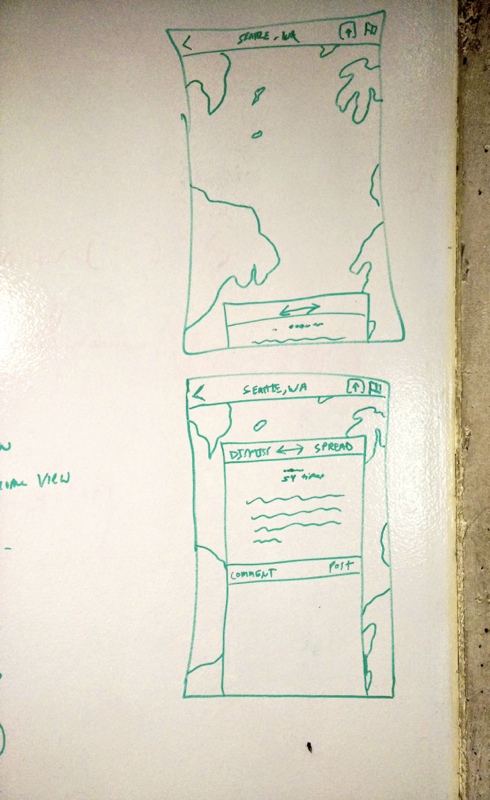 < SEATTLE, WA
< SEATTLE, WA
DISMISS ↔ SPREAD
COMMENT POST
VIEW